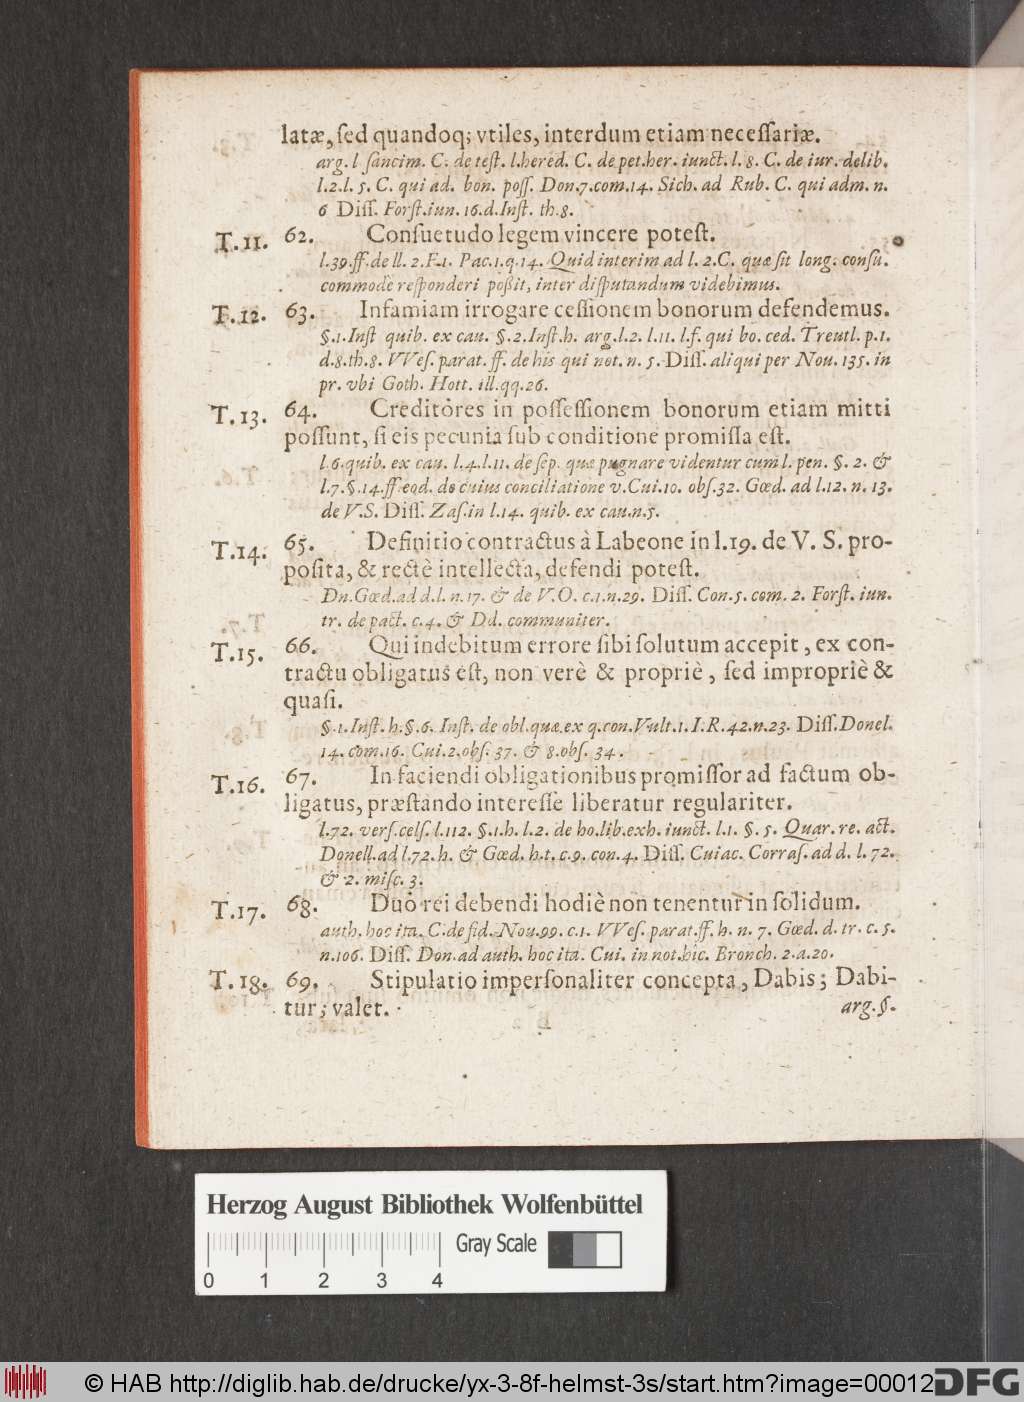 latæ, ſed quandoq; vtiles, interdum etiam neceſſariæ.
arg. l ſancim. C. de teſt. l.hered. C. de pet.her. iunct. l. 8. C. de iur. delib.
l.2.l. 5. C. qui ad. bon. poſſ. Don.7.com.14. Sich. ad Rub. C. qui adm. n.
6 Diſſ. Forſt.iun. 16.d.Inſt. th.8.
T.11. 62. Conſuetudo legem vincere poteſt.
l.39.ff.de ll. 2.F.1. Pac.1.q.14. Quid interim ad l. 2.C. quæ ſit long. conſu.
commodè reſponderi poßit, inter diſputandum videbimus.
T.12. 63. Infamiam irrogare ceſſionem bonorum defendemus.
§.1.Inſt quib. ex cau. §.2.Inſt.h. arg.l.2. l.11. l.f. qui bo. ced. Treutl. p.1.
d.8.th.8. VVeſ. parat. ff. de his qui not. n. 5. Diſſ. aliqui per Nou. 135. in
pr. vbi Goth. Hott. ill.qq.26.
T.13. 64. Creditores in poſſeſſionem bonorum etiam mitti
poſſunt, ſi eis pecunia ſub conditione promiſſa eſt.
l.6.quib. ex cau. l.4.l.11. de ſep. quæ pugnare videntur cum l. pen. §. 2. &
l.7.§.14.ff.eod. de cuius conciliatione v.Cui.10. obſ.32. Gœd. ad l.12. n. 13.
de V.S. Diſſ. Zaſ.in l.14. quib. ex cau.n.5.
T.14. 65. Definitio contractus à Labeone in l.19. de V. S. pro-
poſita, & rectè intellecta, defendi poteſt.
Dn.Gœd.ad d.l. n.17. & de V.O. c.1.n.29. Diſſ. Con.5. com. 2. Forſt. iun.
tr. de pact. c.4. & Dd. communiter.
T.15. 66. Qui indebitum errore ſibi ſolutum accepit, ex con-
tractu obligatus eſt, non verè & propriè, ſed impropriè &
quaſi.
§.1.Inſt.h.§.6. Inſt. de obl.quæ.ex q.con.Vult.1.I.R.42.n.23. Diſſ.Donel.
14.com.16. Cui.2.obſ.37. & 8.obſ. 34.
T.16. 67. In faciendi obligationibus promiſſor ad factum ob-
ligatus, præſtando intereſſe liberatur regulariter.
l.72. verſ.celſ. l.112. §.1.h. l.2. de ho.lib.exh. iunct. l.1. §. 5. Quar. re. act.
Donell.ad l.72.h. & Gœd. h.t.c.9. con.4. Diſſ. Cuiac. Corraſ. ad d. l. 72.
& 2. miſc. 3.
T.17. 68. Duo rei debendi hodiè non tenentur in ſolidum.
auth. hoc ita. C.de fid. Nou.99. c.1. VVeſ. parat.ff. h. n. 7. Gœd. d. tr. c. 5.
n.106. Diſſ. Don.ad auth. hoc ita. Cui. in not.hic. Bronch. 2.a.20.
T.18. 69. Stipulatio imperſonaliter concepta, Dabis; Dabi-
tur; valet.
arg.§.
Herzog August Bibliothek Wolfenbüttel
Gray Scale
0 1 2 3 4
© HAB http://diglib.hab.de/drucke/yx-3-8f-helmst-3s/start.htm?image=00012
DFG